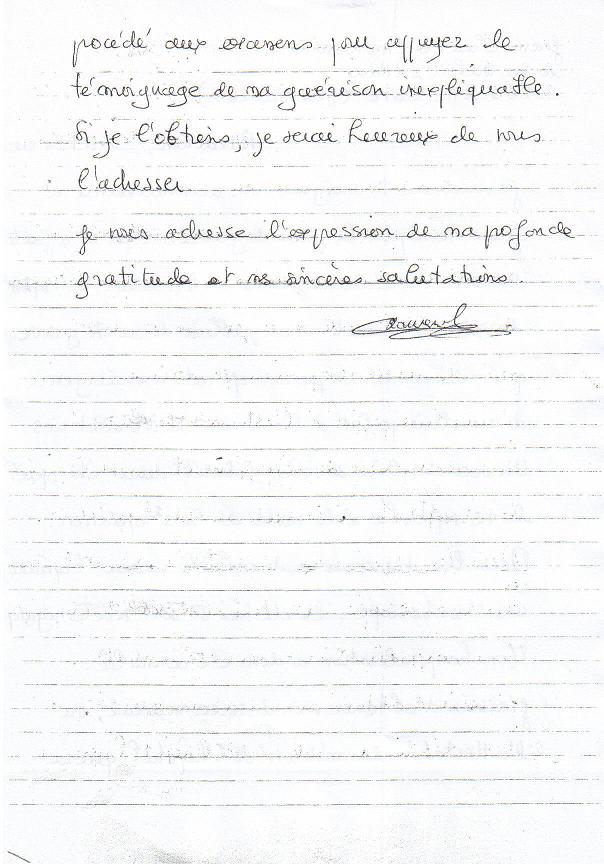 procédé aux examens pour appuyer le
témoignage de ma guérison inexpliquable.
Si je l'obtiens, je serai heureux de vous
l'adresser
Je vous adresse l'expression de ma profonde
gratitude et mes sincères salutations.